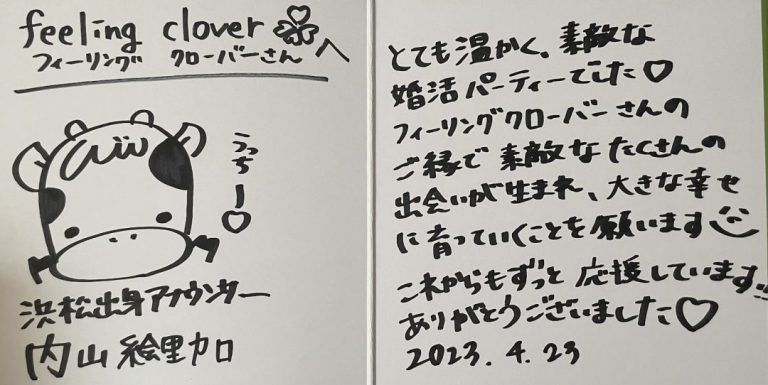 feeling clover へ
フィーリング クローバーさん
うっちー♡
浜松出身アナウンサー
内山絵里加
とても温かく、素敵な
婚活パーティーでした♡
フィーリングクローバーさんの
ご縁で素敵なたくさんの
出会いが生まれ、大きな幸せ
に育っていくことを願います
これからもずっと応援しています!!
ありがとうございました♡
2023.4.23